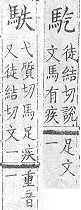 徒結切說足文
文馬有疾一
弋質切馬足疾重音
又徒結切文二一